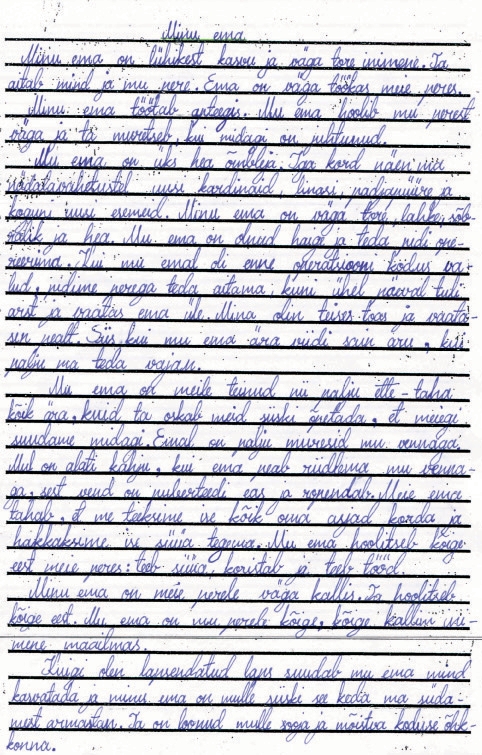 Minu ema
Minu ema on lühikest kasvu ja väga tore inimene. Ta
aitab mind ja mu pere. Ema on väga töökas meie peres.
Minu ema töötab apteegis. Mu ema hoolib mu perest
väga ja ta muretseb, kui midagi on juhtunud.
Mu ema on üks hea õmbleja. Iga kord näen ma
nädalavahetustel uusi kardinaid, linasi, padjapüüre ja
koguni uusi esemeid. Minu ema on väga tore, lahke, sõb-
ralik ja hea. Mu ema on olnud haige ja teda pidi ope-
reerima. Kui mu emal oli enne operatsiooni kodus va-
lud, pidime perega teda aitama, kuni ühel päeval tuli
arst ja vaatas ema üle. Mina olin teises toas ja vaata-
sin pealt. Siis, kui mu ema ära viidi sain aru, kui
palju ma teda vajan.
Mu ema on meile teinud nii palju ette-taha
kõik ära, kuid ta oskab meid siiski õpetada, et meiegi
suudame midagi. Emal on palju muresid mu vennaga.
Mul on alati kahju, kui ema peab riidlema mu venna-
ga, sest vend on puberteedi eas ja ropendab. Meie ema
tahab, et me teeksime ise kõik oma asjad korda ja
hakkaksime ise süüa tegema. Mu ema hoolitseb kõige
eest meie peres: teeb süüa, koristab ja teeb tööd.
Minu ema on meie perele väga kallis. Ta hoolitseb
kõige eest. Mu ema on mu perele kõige, kõige kallim ini-
mene maailmas.
Kuigi olen lapsendatud laps suudab mu ema mind
kasvatada ja minu ema on mulle siiski see keda ma süda-
mest armastan. Ta on loonud mulle sooja ja mõistva koduse õhk-
konna.